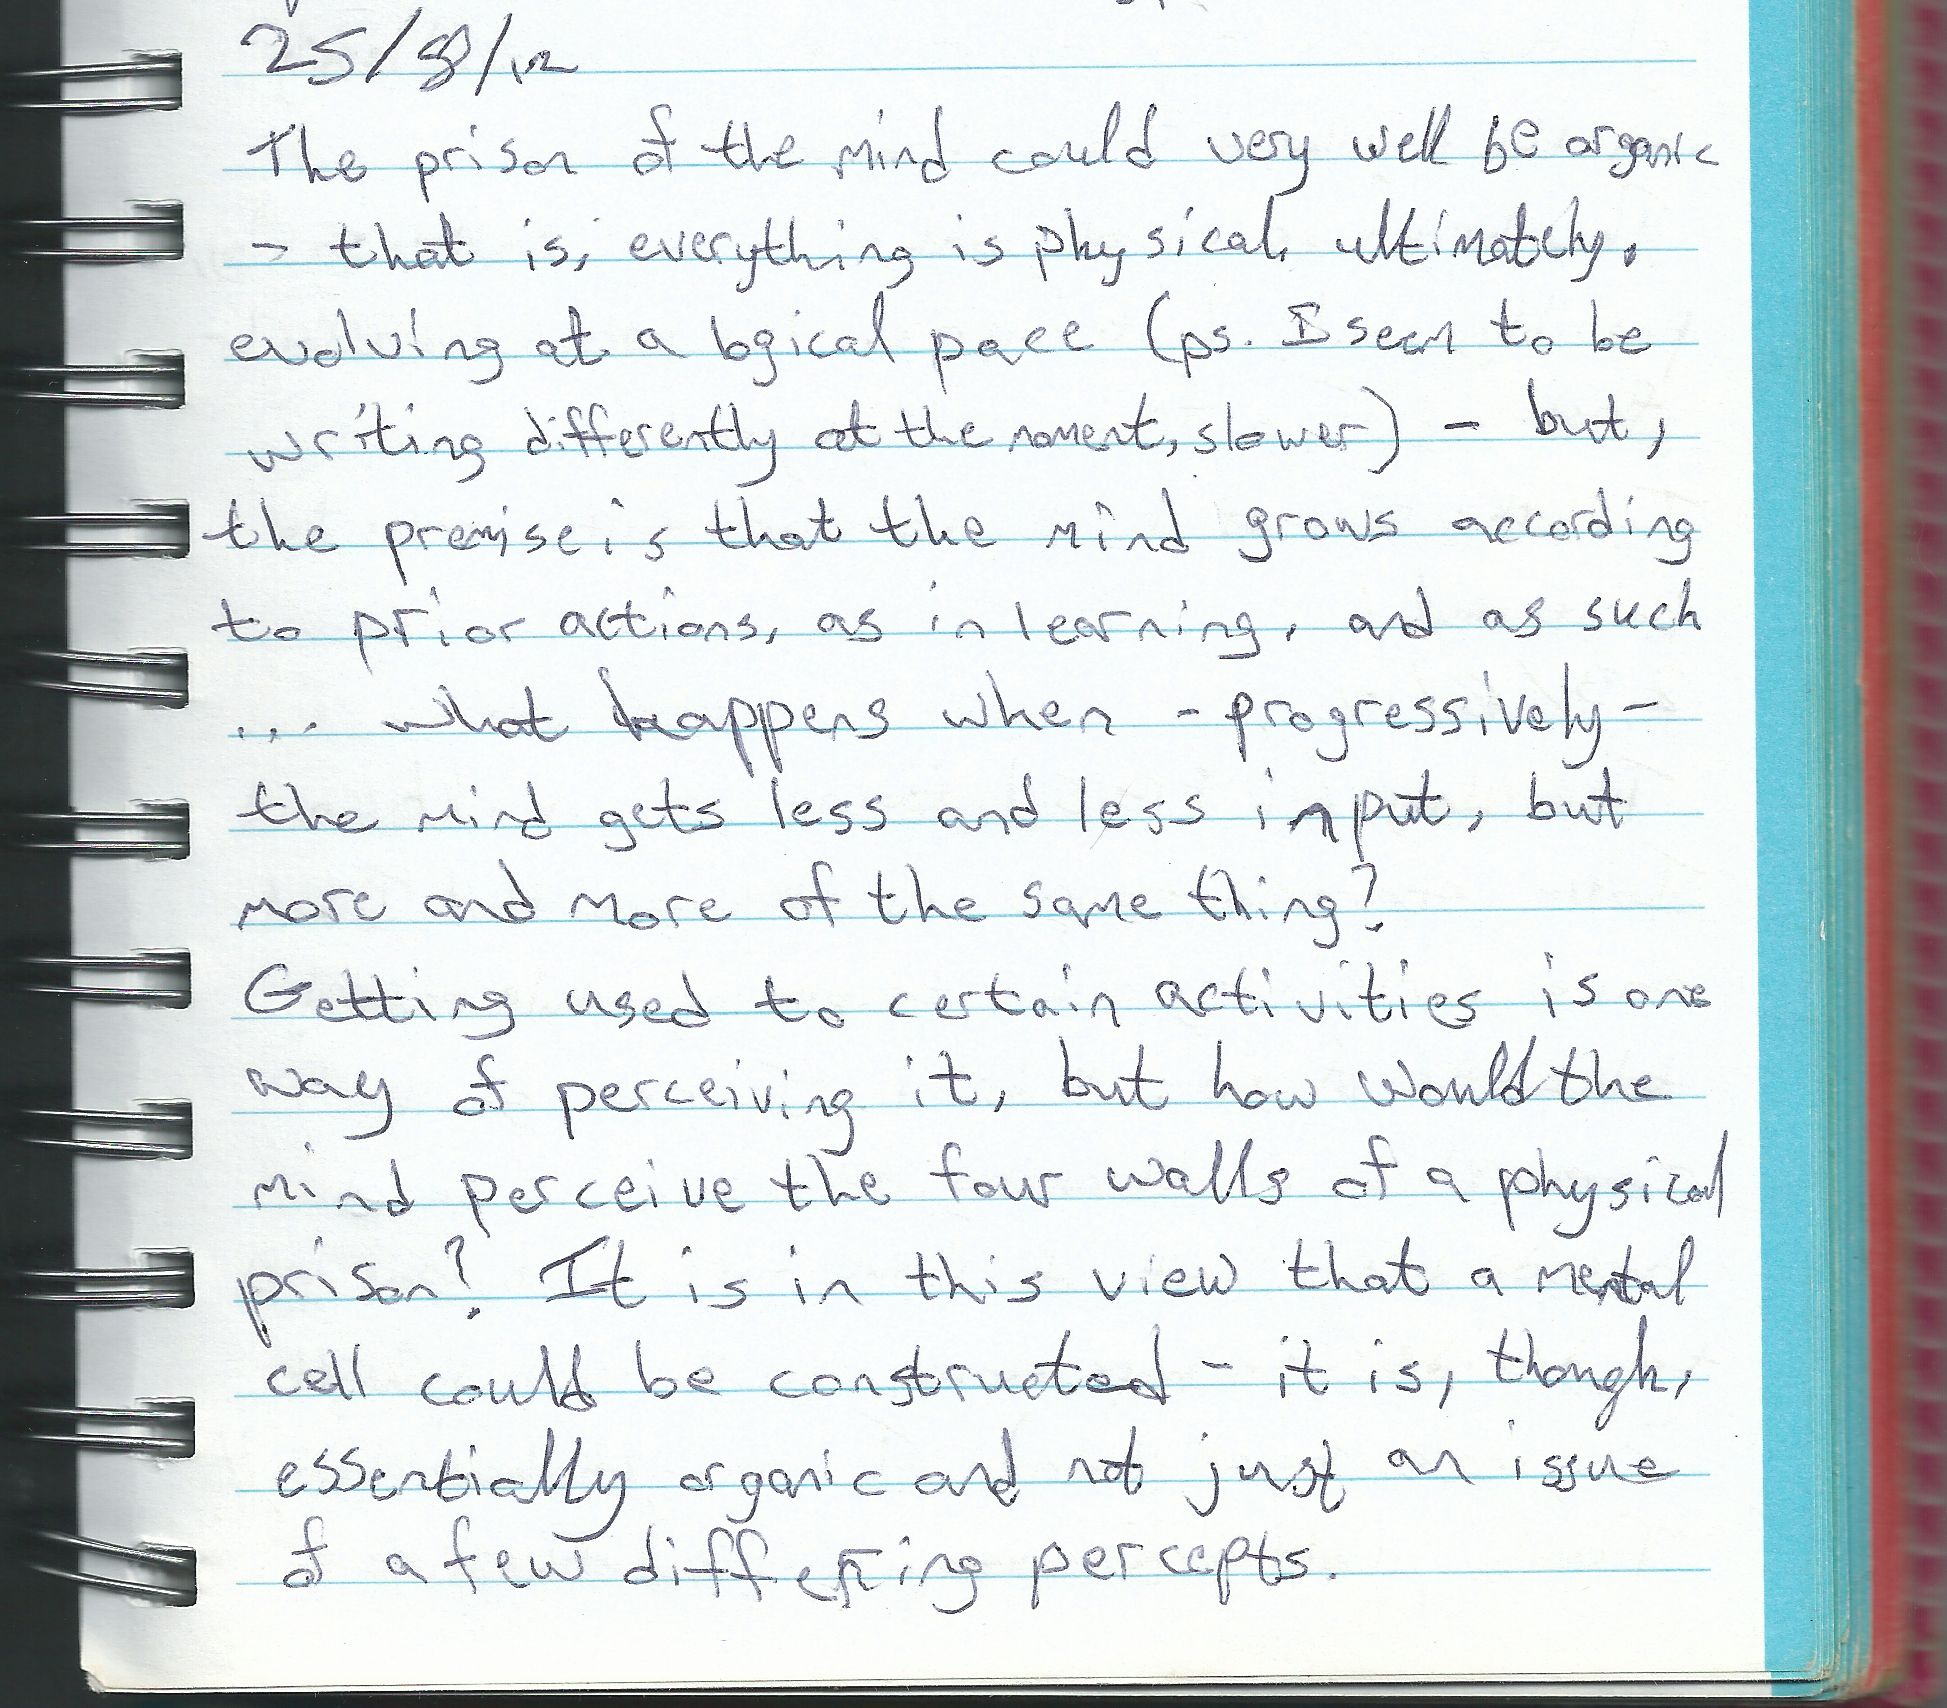 25/8/12
The prison of the mind could very well be organic
- that is, everything is physical, ultimately,
evolving at a logical pace (ps. I seem to be
writing differently at the moment, slower) - but,
the premise is that the mind grows according
to prior actions, as in learning, and as such
... what happens when - progressively -
the mind gets less and less input, but
more and more of the same thing?
Getting used to certain activities is one
way of perceiving it, but how would the
mind perceive the four walls of a physical
prison? It is in this view that a mental
cell could be constructed - it is, though,
essentially organic and not just an issue
of a few differing percepts.